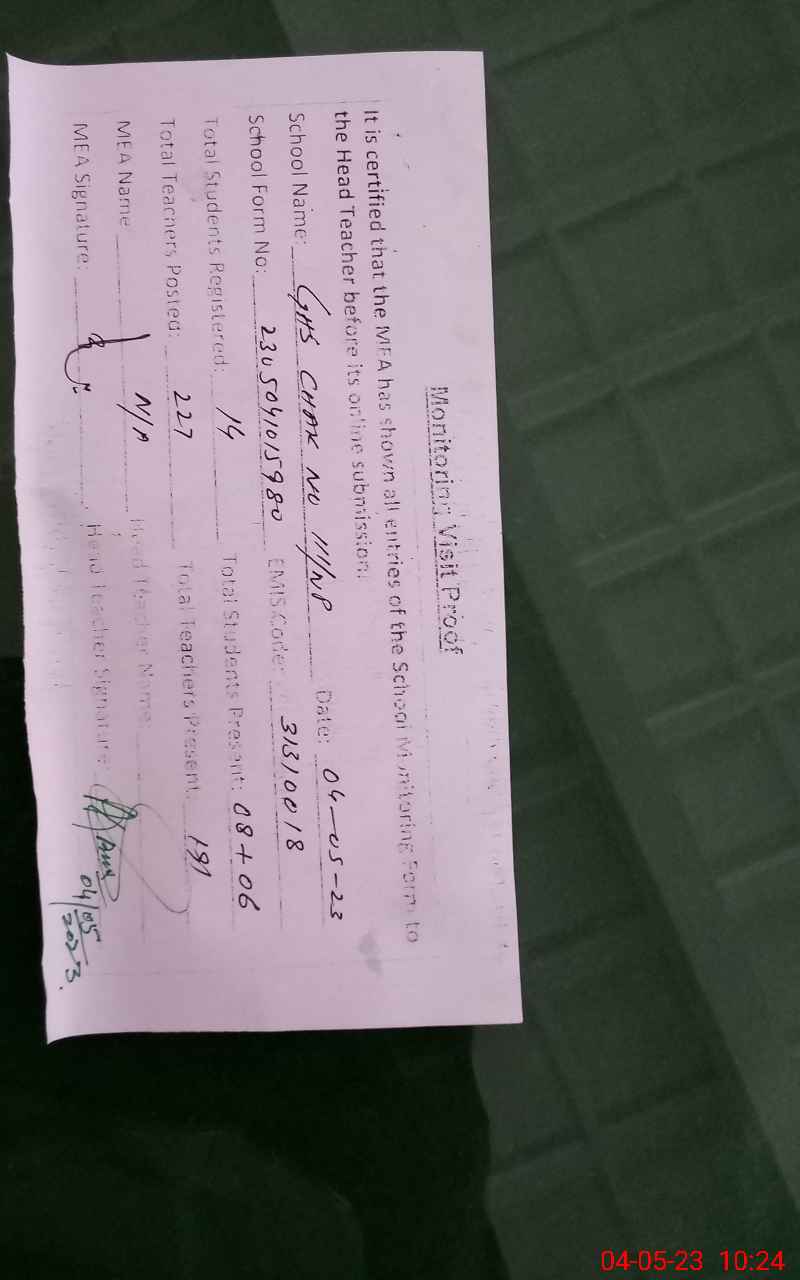 Monitoring Visit Proof
It is certified that the MEA has shown all entries of the School Monitoring Form to
the Head Teacher before its online submission.
School Name: GHS CHAK NO 111/NP Date: 04-05-23
School Form No: 2305041015980 EMIS Code: 31310018
Total Students Registered: 14 Total Students Present: 08+06
Total Teachers Posted: 227 Total Teachers Present: 191
MEA Name N/A Head Teacher Name:
MEA Signature: Head Teacher Signature:
04/05/2023.
04-05-23 10:24